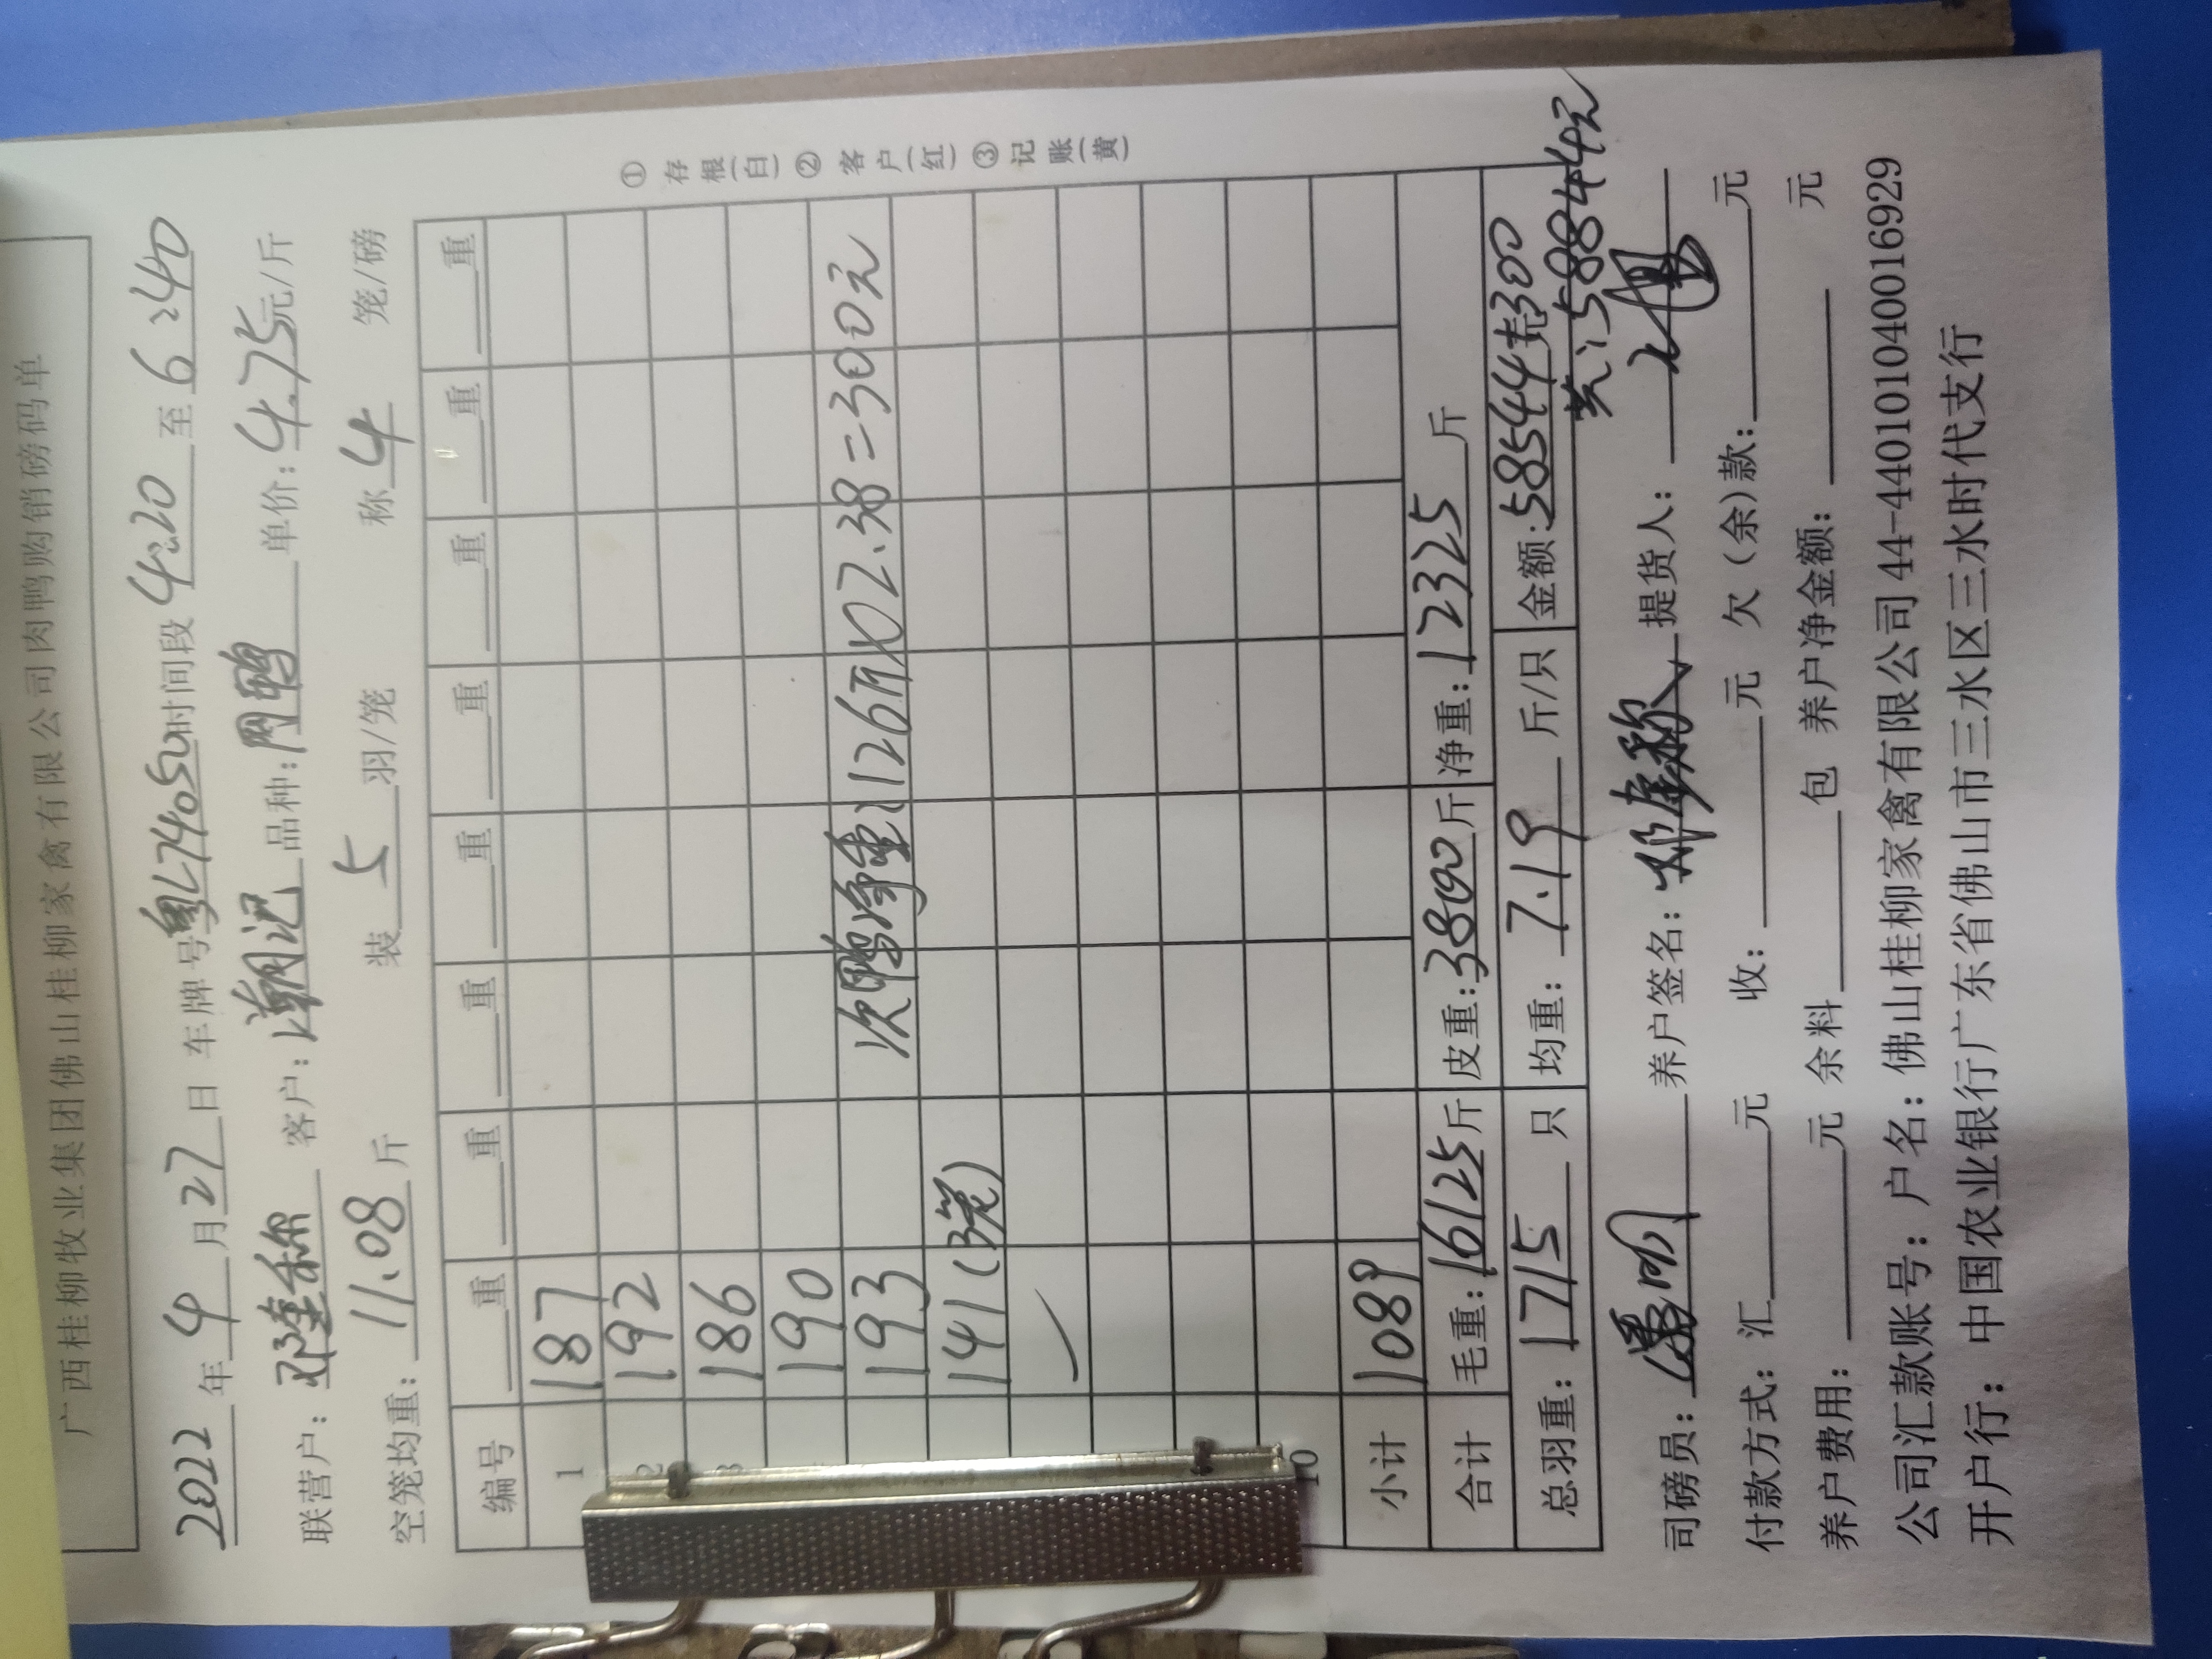 广西桂柳牧业集团佛山桂柳家禽有限公司肉鸭购销磅码单
2022年4月27日 车牌号粤L7405U时间段4:20至6:40
联营户:邓连称 客户:潮记 品种:肉鸭 单价:4.75元/斤
空笼均重:11.08斤 装5羽/笼 称4笼/磅
编号 重 重 重 重 重 重 重 重
1 187
2 192
3 186
190
193 次鸭净重:126斤×2.38=300元
141(3笼)
10
小计 1089
合计 毛重:16125斤 皮重:3800斤 净重:12325斤
总羽重:1715只 均重:7.19斤/只 金额:58544+300
共:58844元
司磅员: 养户签名:邓连称 提货人:
付款方式:汇 元 收: 元 欠(余)款: 元
养户费用: 元 余料 包 养户净金额: 元
公司汇款账号:户名:佛山桂柳家禽有限公司 44-440101040016929
开户行: 中国农业银行广东省佛山市三水区三水时代支行
① 存根(白) ② 客户(红) ③ 记账(黄)